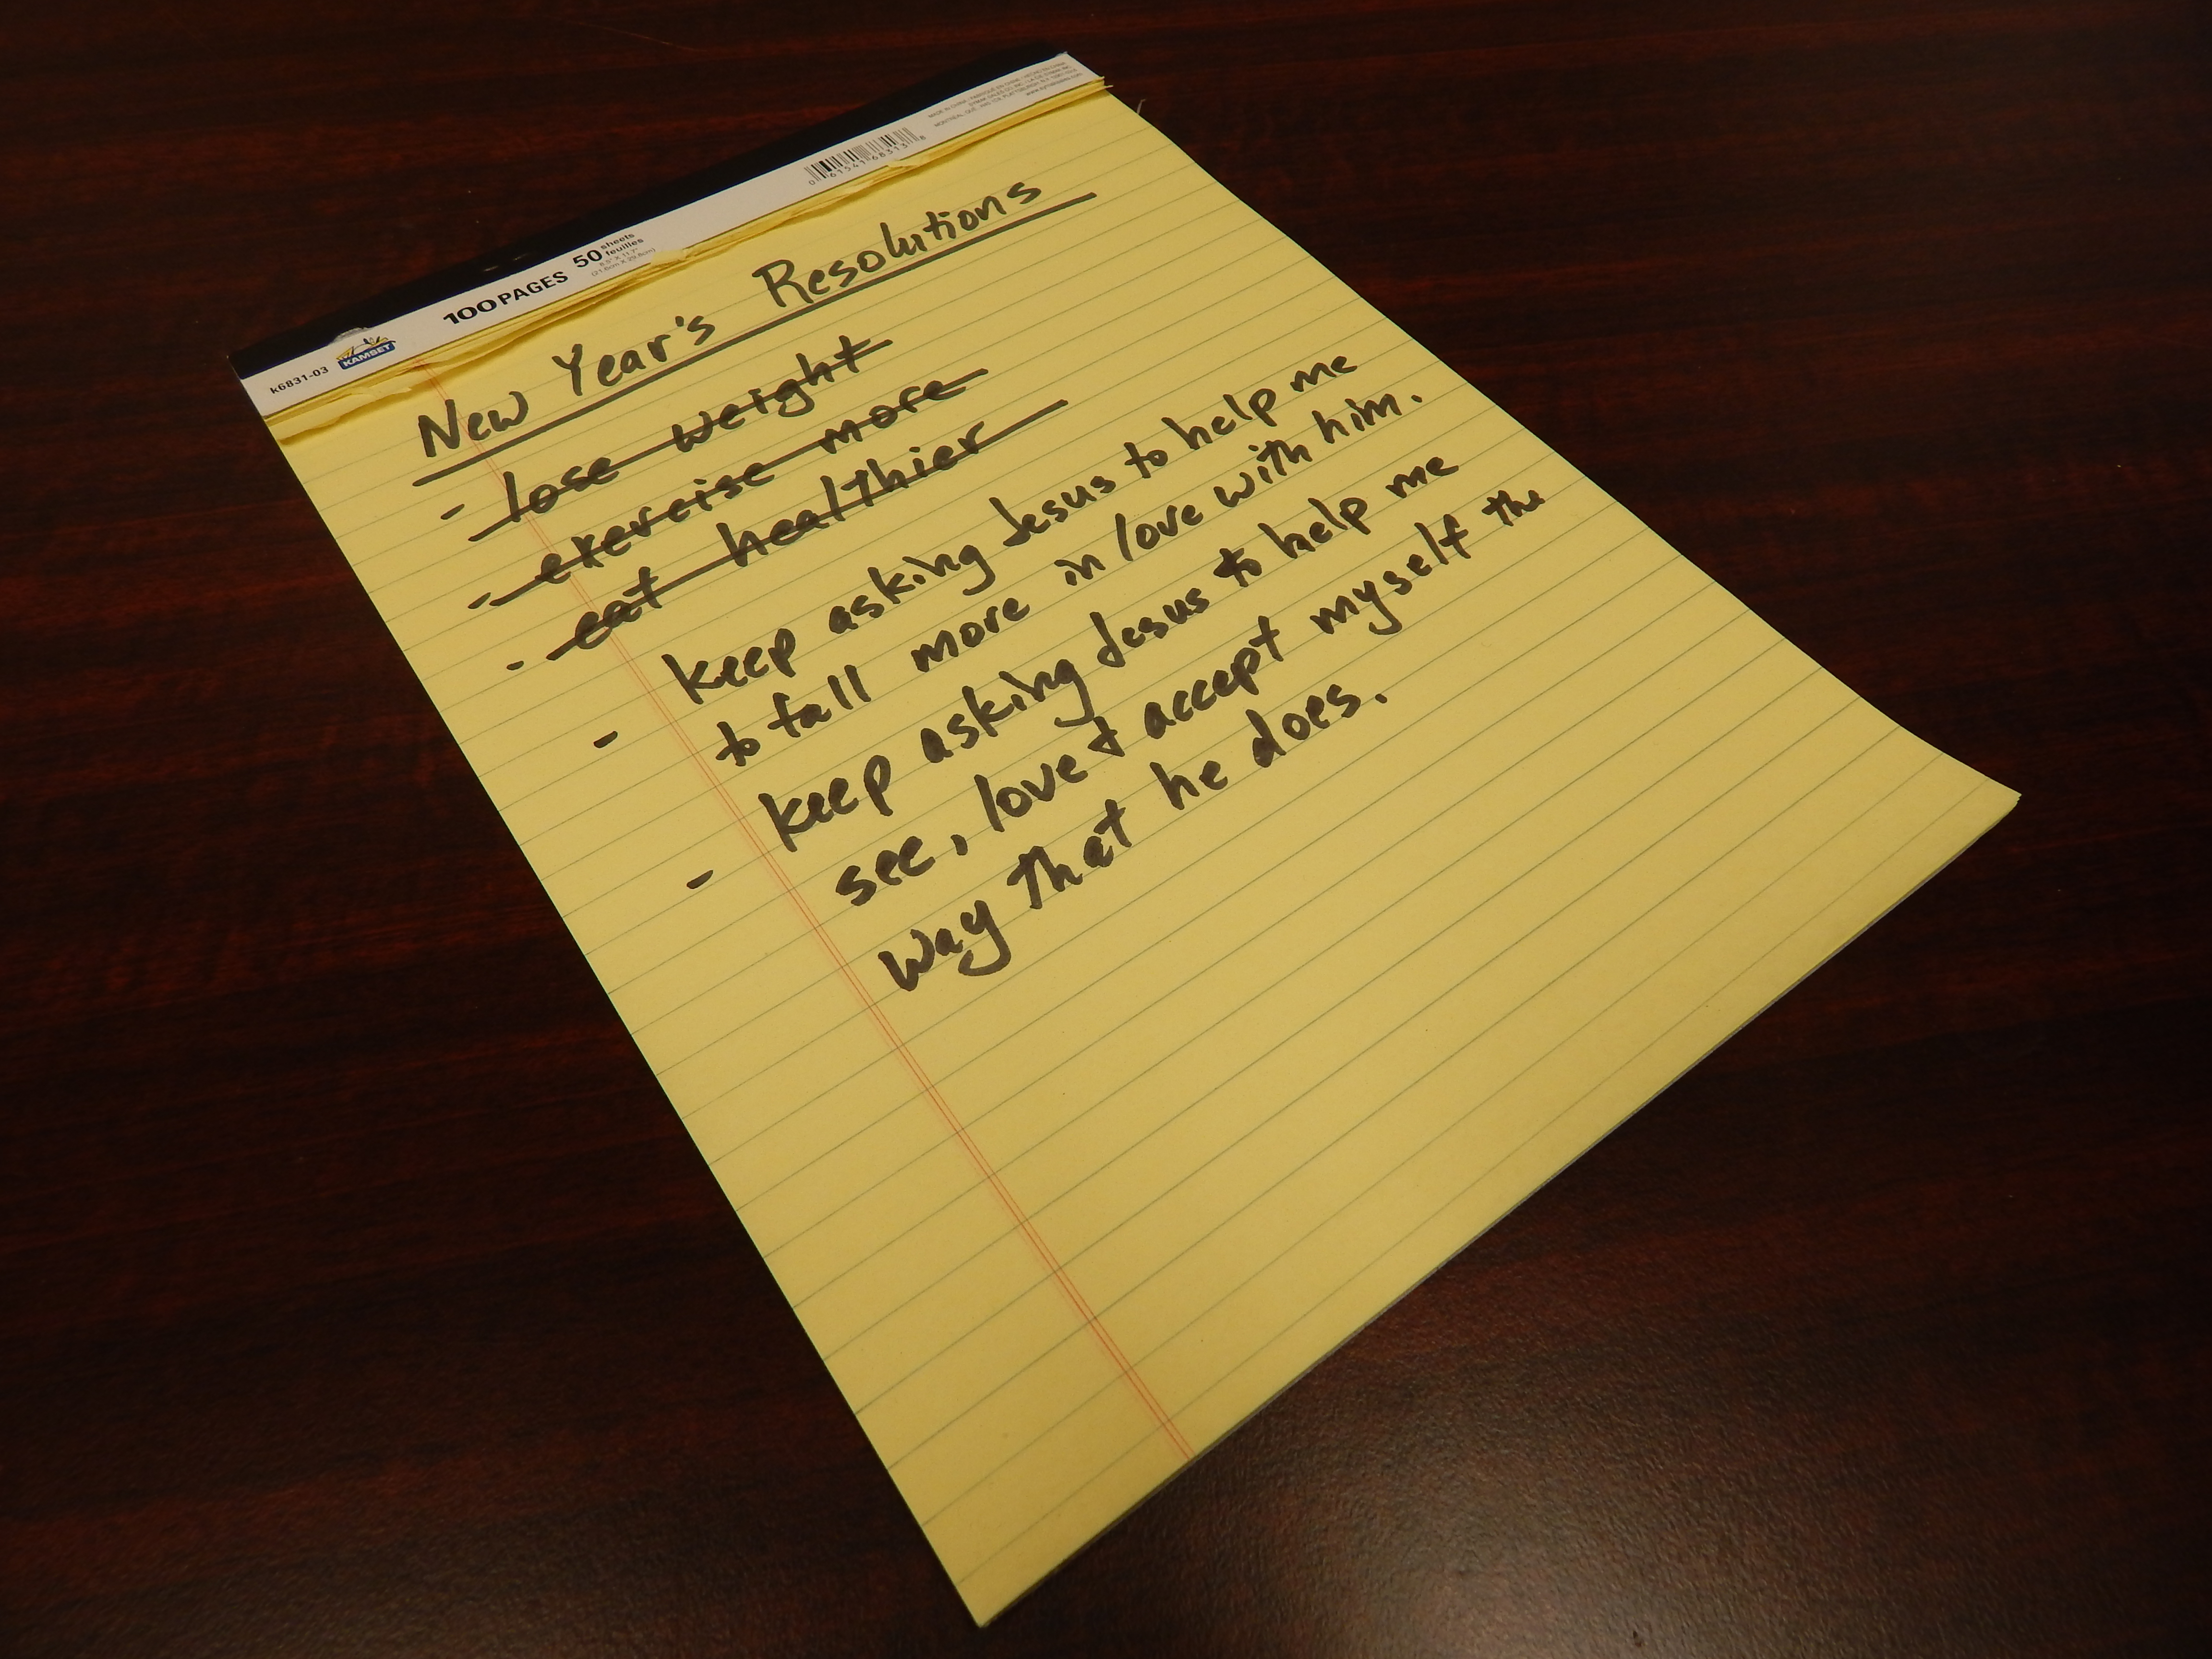 MADE IN CHINA
www.
0 61541 68313 8
100 PAGES 50 sheets
feuilles
8.5" X 11.7"
k6831-03 KAMSET
New Year's Resolutions
- lose weight
- exercise more
- eat healthier
- keep asking Jesus to help me
to fall more in love with him.
- keep asking Jesus to help me
see, love & accept myself the
way that he does.